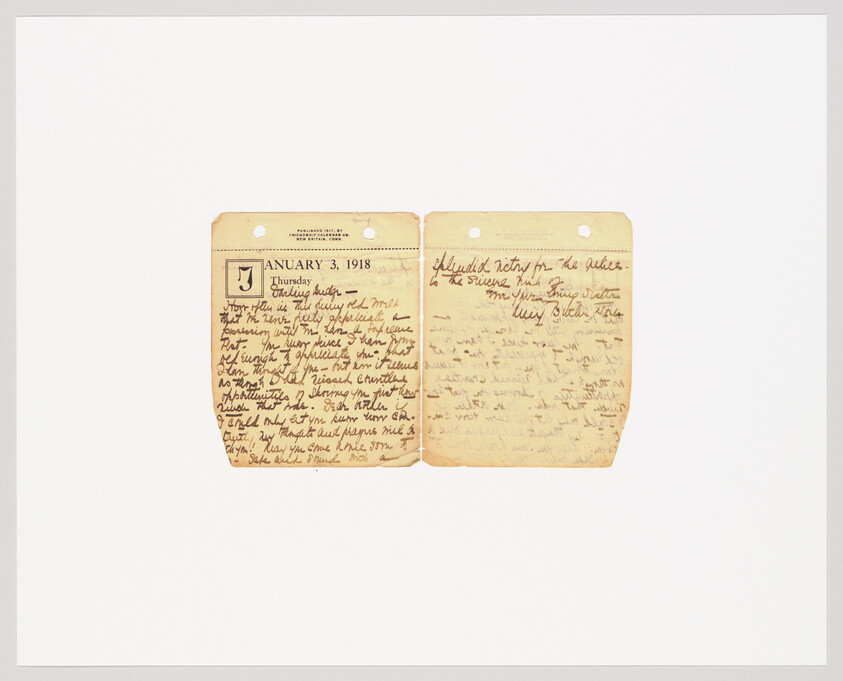 PUBLISHED 1917, BY
FRIENDSHIP CALENDAR CO.
NEW BRITAIN, CONN.
JANUARY 3, 1918
Thursday
Darling
How often in this funny old world
that we never fully appreciate a
possession until we have a supreme
test. You know since I have grown
old enough to appreciate you - what
I have thought of you - but now it seems
as though I had missed countless
opportunities of showing you just how
much that was. Dear brother if
I could only let you know how
my thoughts and prayers will be
with you! May you come home soon to
safe and sound with a
Splendid victory for the allies -
is the sincere wish of
Your loving Sister
Butler